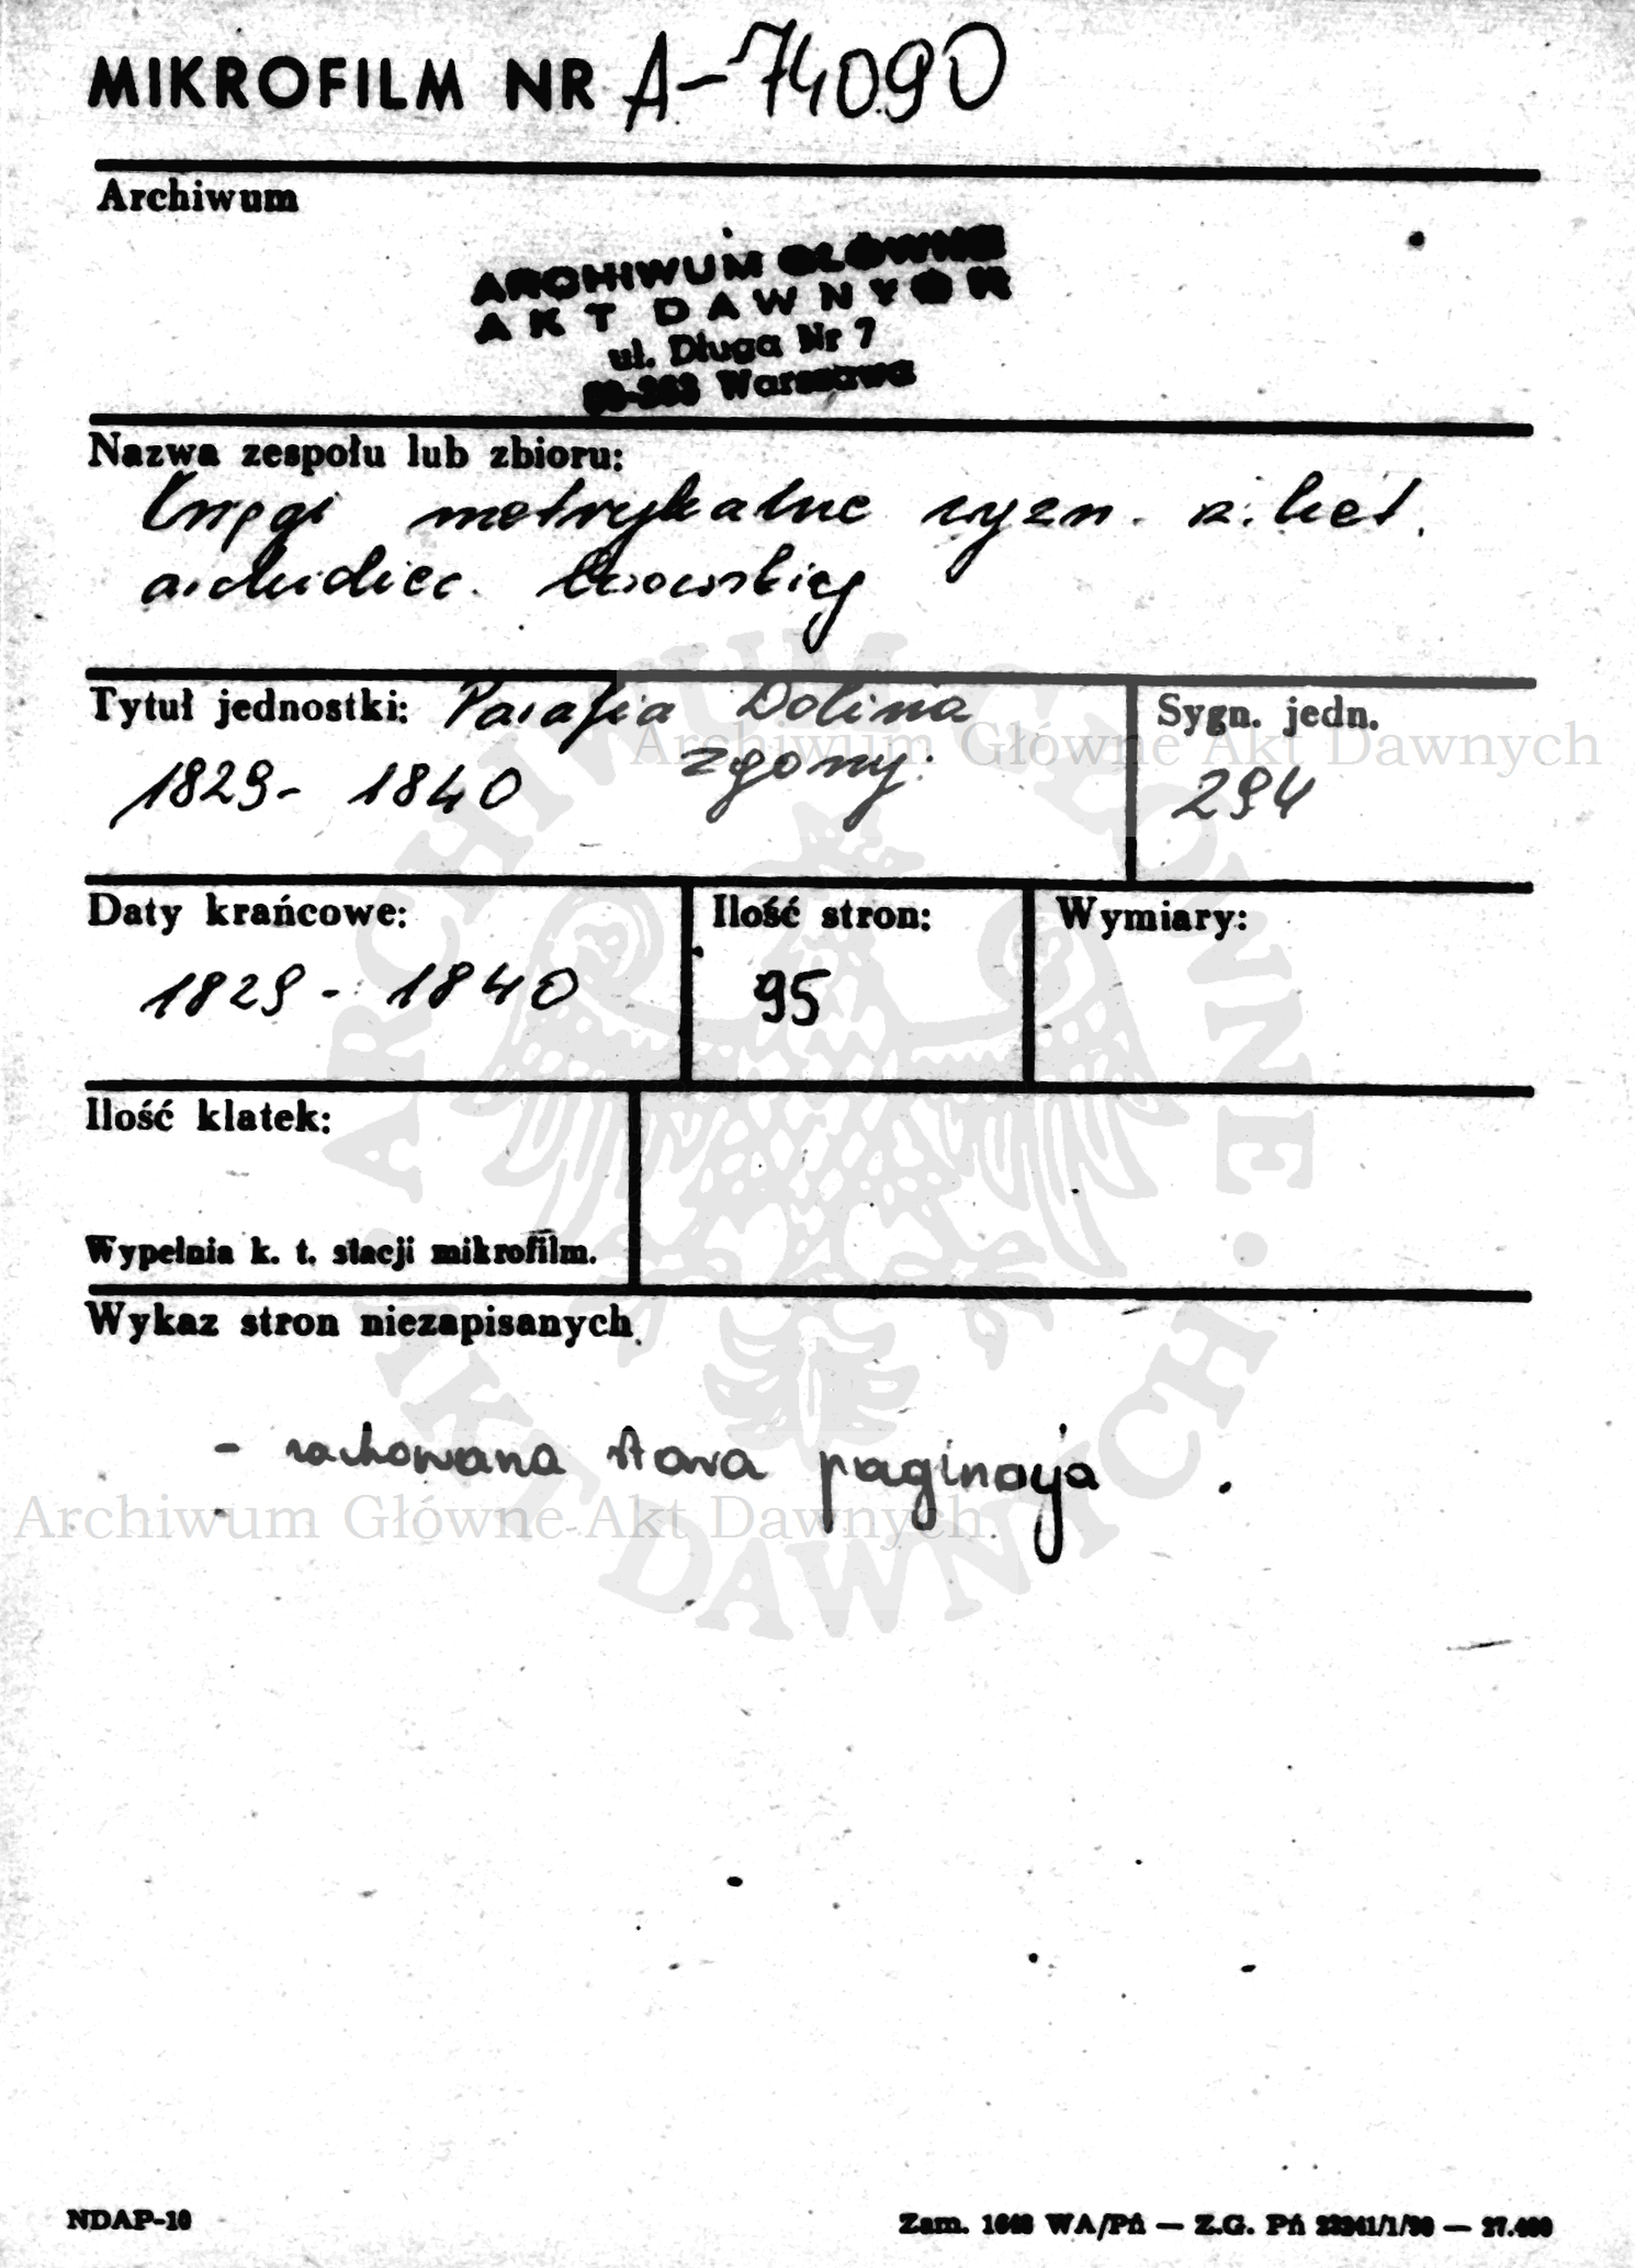 MIKROFILM NR A-74090
Archiwum
ARCHIWUM GŁÓWNE
AKT DAWNYCH
ul. Długa Nr 7
Warszawa
Nazwa zespołu lub zbioru:
Księgi metrykalne wyzn. rz. kat.
archidiec. Lwowskiej
Tytuł jednostki: Parafia Dolina
Sygn. jedn.
Archiwum Główne Akt Dawnych
1829- 1840 zgony:
294
Daty krańcowe:
Ilość stron:
Wymiary:
1829 - 1840
95
Ilość klatek:
Wypełnia k. t. stacji mikrofilm.
Wykaz stron niezapisanych
- rachowana stara paginacja
Archiwum Główne Akt Dawnych
ARCHIWUM GŁÓWNE · AKT DAWNYCH ·
NDAP-10
Zam. WA/Pń — Z.G. Pń